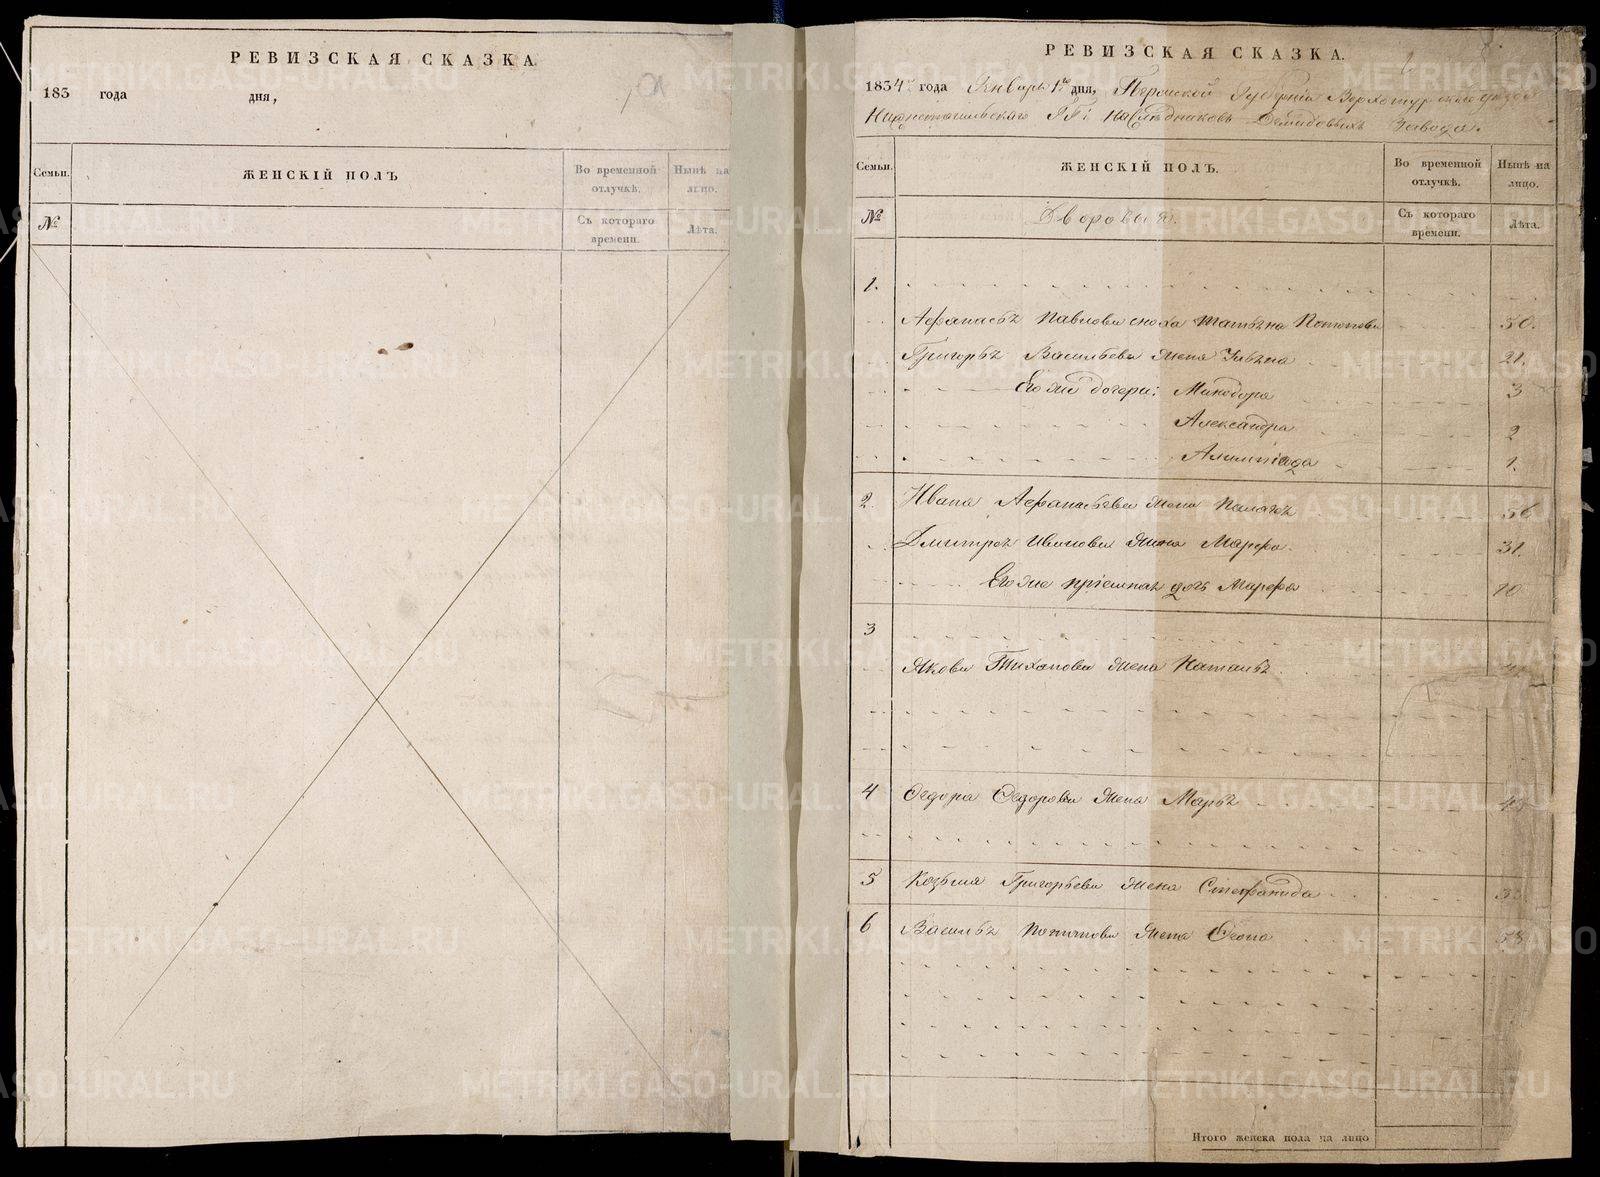 РЕВИЗСКАЯ СКАЗКА
183 года дня,
Семьи. ЖЕНСКІЙ ПОЛЪ Во временной отлучкѣ. Нынѣ на лицо.
№ Съ котораго времени. Лѣта.
РЕВИЗСКАЯ СКАЗКА.
1834 года Январь 1го дня, Пермской Губерніи Верхотурскаго уезда
Нижнетагильскаго ГГ: Наследниковъ Демидовыхъ Завода.
Семьи. ЖЕНСКІЙ ПОЛЪ. Во временной отлучкѣ. Нынѣ на лицо.
№ Дворовыя. Съ котораго времени. Лѣта.
1.
Афанасья Павлова сноха Татьяна 50.
Григорья Васильева жена Ульяна 21.
Его же дочери: Минодора 3
Александра 2
Алимпіада 1.
2. Ивана Афанасьева жена Палагея 56
Дмитрея Иванова жена Марфа 31.
Его же пріемная дочь Марфа 10
3
Якова Тиханова жена Наталья
4 Федора Федорова жена Марья
5 Козьма Григорьева жена Стефанида
6 Василья жена Феона 58
Итого женска пола на лицо
METRIKI.GASO-URAL.RU